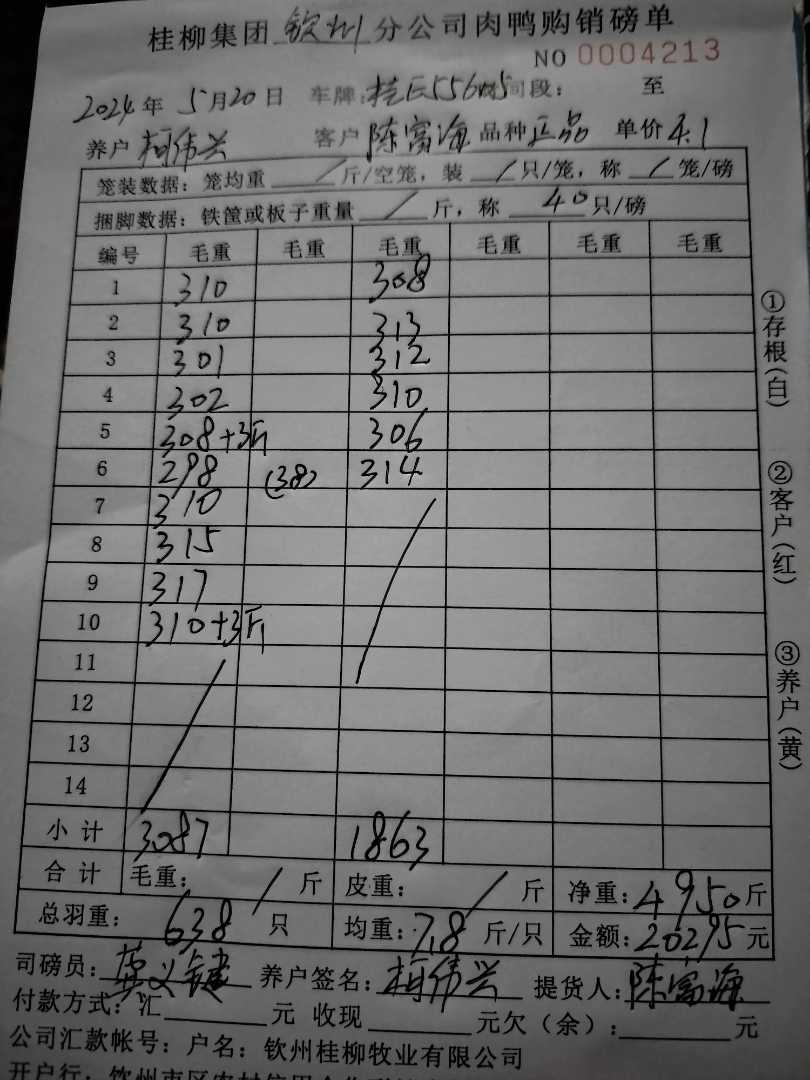 桂柳集团 钦州 分公司肉鸭购销磅单
NO 0004213
2024年 5月20日 车牌: 间段: 至
养户 柯伟兴 客户 陈富海 品种 正品 单价 4.1
笼装数据: 笼均重 / 斤/空笼, 装 / 只/笼, 称 / 笼/磅
捆脚数据: 铁筐或板子重量 / 斤, 称 40 只/磅
编号 毛重 毛重 毛重 毛重 毛重 毛重
1 310 308
2 310 313
3 301 312
4 302 310
5 308+3斤 306
6 298 (38) 314
7 310
8 315
9 317
10 310+3斤
11
12
13
14
小计 3087 1863
合计 毛重: / 斤 皮重: / 斤 净重: 4950斤
总羽重: 638 只 均重: 7.8 斤/只 金额: 20295元
司磅员: 养户签名: 柯伟兴 提货人: 陈富海
付款方式: 汇 元 收现 元欠(余): 元
公司汇款帐号: 户名: 钦州桂柳牧业有限公司
①存根(白)
②客户(红)
③养户(黄)